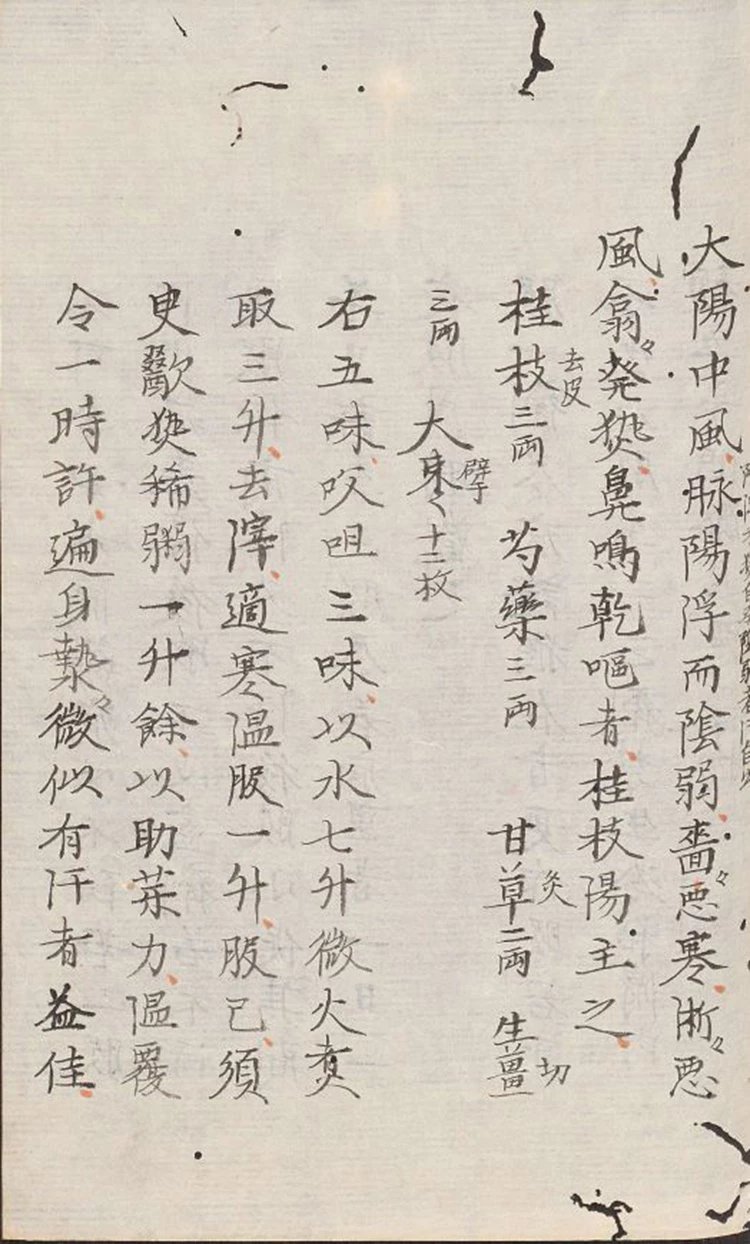 大陽中風脉陽浮而陰弱嗇々悪寒淅々悪
風翕々発熱鼻鳴乾嘔者桂枝陽主之
桂枝三両去皮 芍藥三両 甘草二両炙 生薑切
三両 大棗擘十二枚
右五味㕮咀三味以水七升微火煮
取三升去滓適寒温服一升服已須
史歠熱稀粥一升餘以助藥力温覆
令一時許遍身漐々微似有汗者益佳